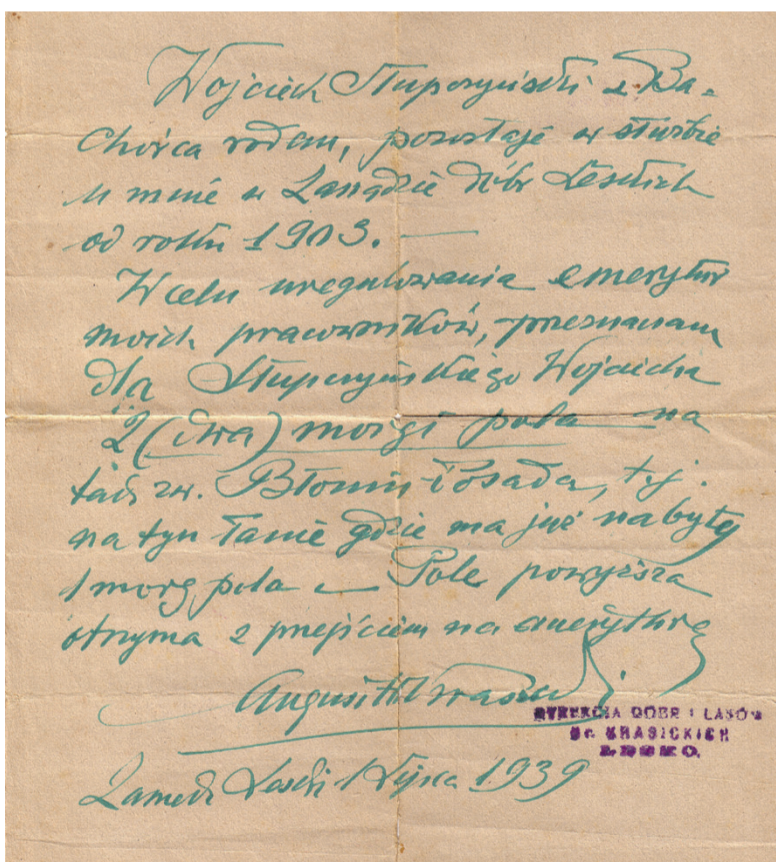 Wojciech Słupczyński z Ba-
chórca rodem, pozostaje w służbie
u mnie w Zarządzie dóbr Leskich
od roku 1903. —
W celu uregulowania emerytur
moich pracowników, przeznaczam
dla Słupczyńskiego Wojciecha
2 (dwa) morgi pola na
tak zw. Błoniu Posada, t.j.
na tym łanie gdzie ma już nabyty
1 morg pola — Pole powyższe
otrzyma z przejściem na emeryturę
August Krasicki
DYREKCJA DÓBR I LASÓW
Hr. KRASICKICH
LESKO.
Zamek Leski 1 Lipca 1939